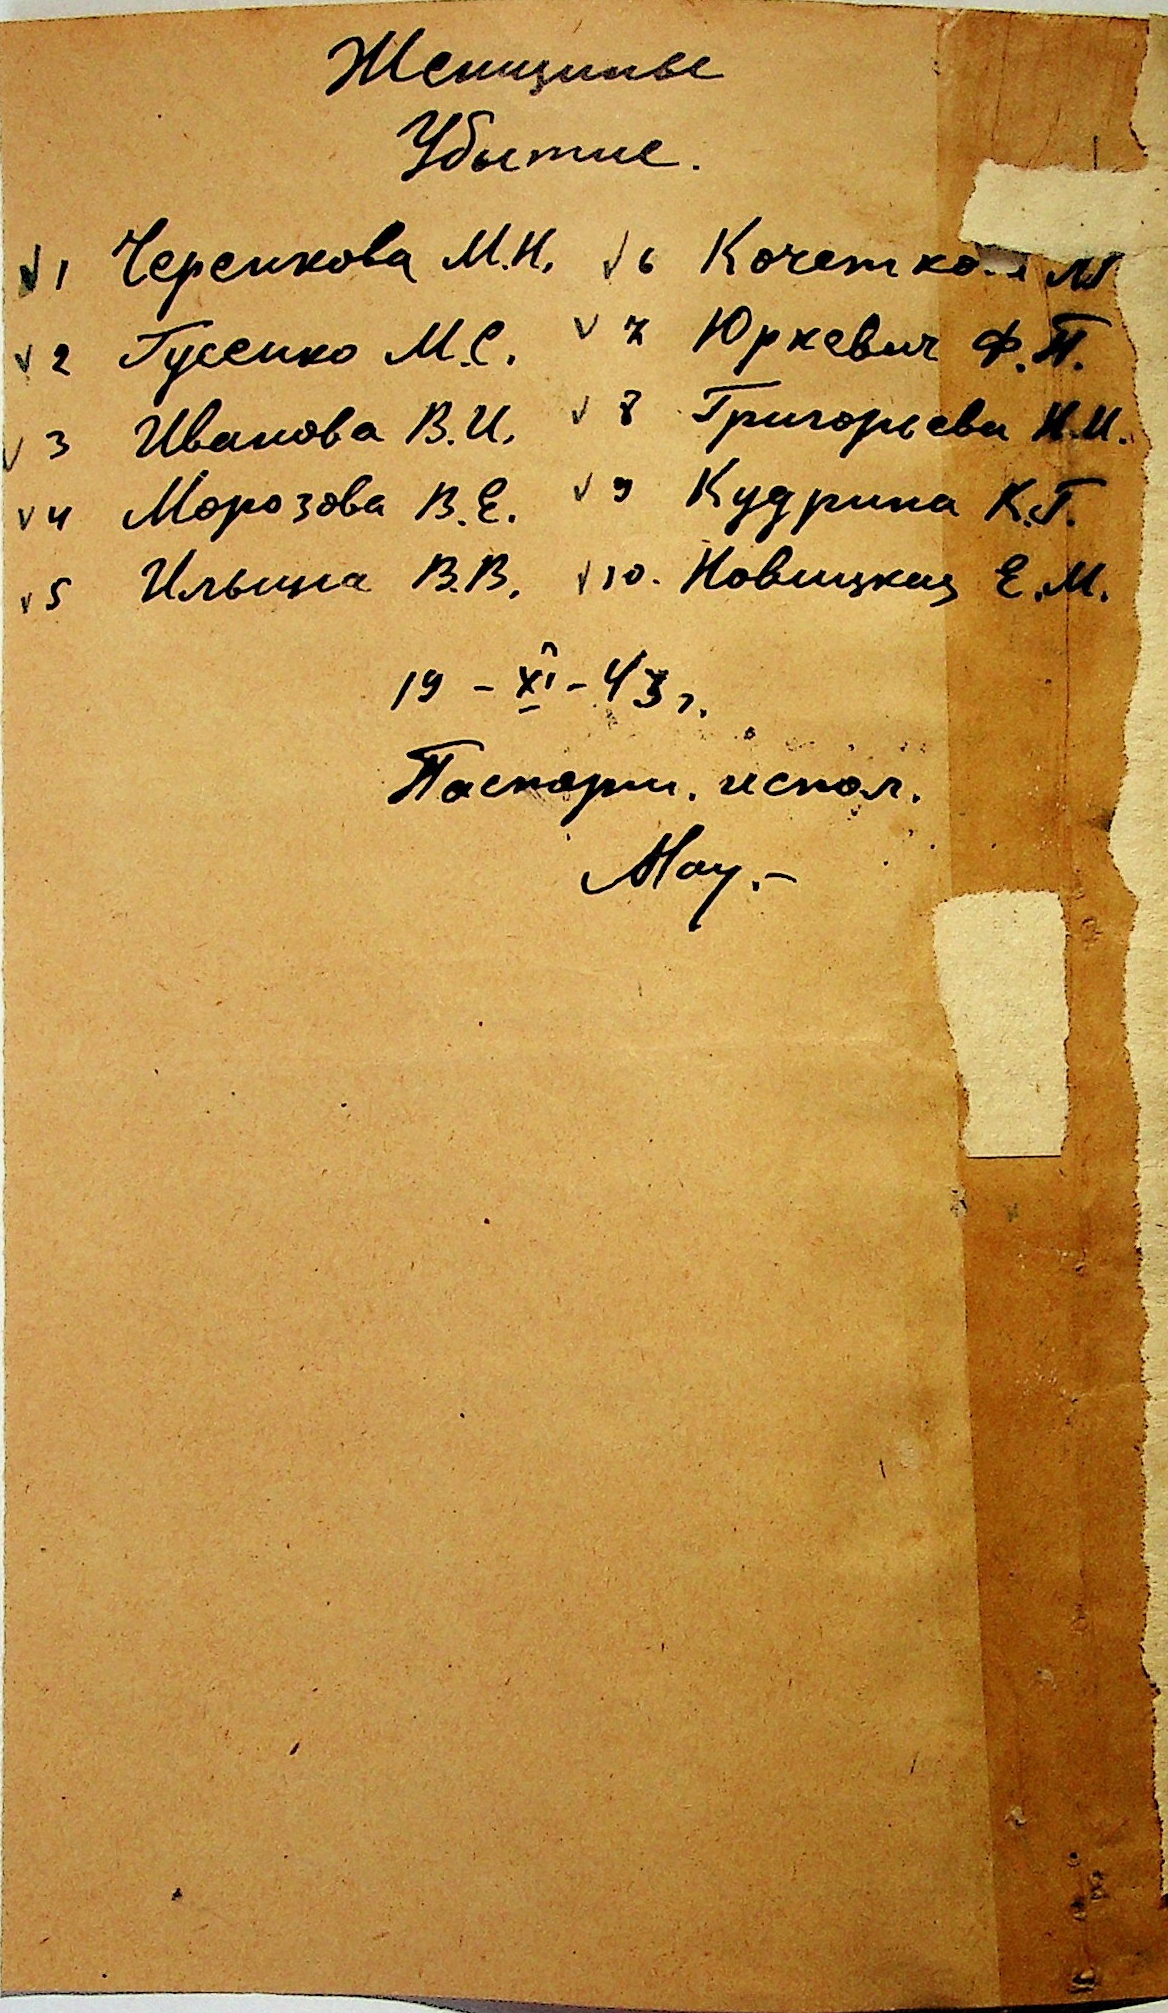 Женщины
Убытие.
√ 1 Черенкова М.Н. √ 6
√ 2 Гусенко М.С. √ 7 Юркевич Ф.П.
√ 3 Иванова В.И. √ 8 Григорьева Н.И.
√ 4 Морозова В.Е. √ 9 Кудрина К.Г.
√ 5 Ильина В.В. √ 10. Новицкая Е.М.
19 - XI - 43 г.
Паспорт. испол.